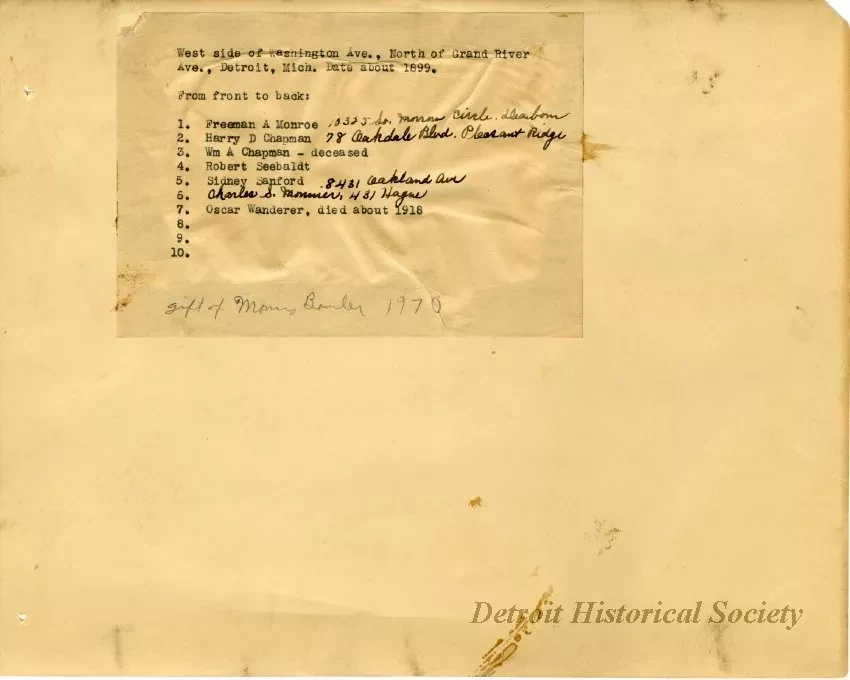 West side of Washington Ave., North of Grand River
Ave., Detroit, Mich. Date about 1899.
From front to back:
1. Freeman A Monroe 10325 So. Monroe Circle. Dearborn
2. Harry D Chapman 78 Oakdale Blvd. Pleasant Ridge
3. Wm A Chapman - deceased
4. Robert Seebaldt
5. Sidney Sanford 8431 Oakland Ave
6. Charles S. 431 Hague
7. Oscar Wanderer, died about 1918
8.
9.
10.
gift of 1970
Detroit Historical Society